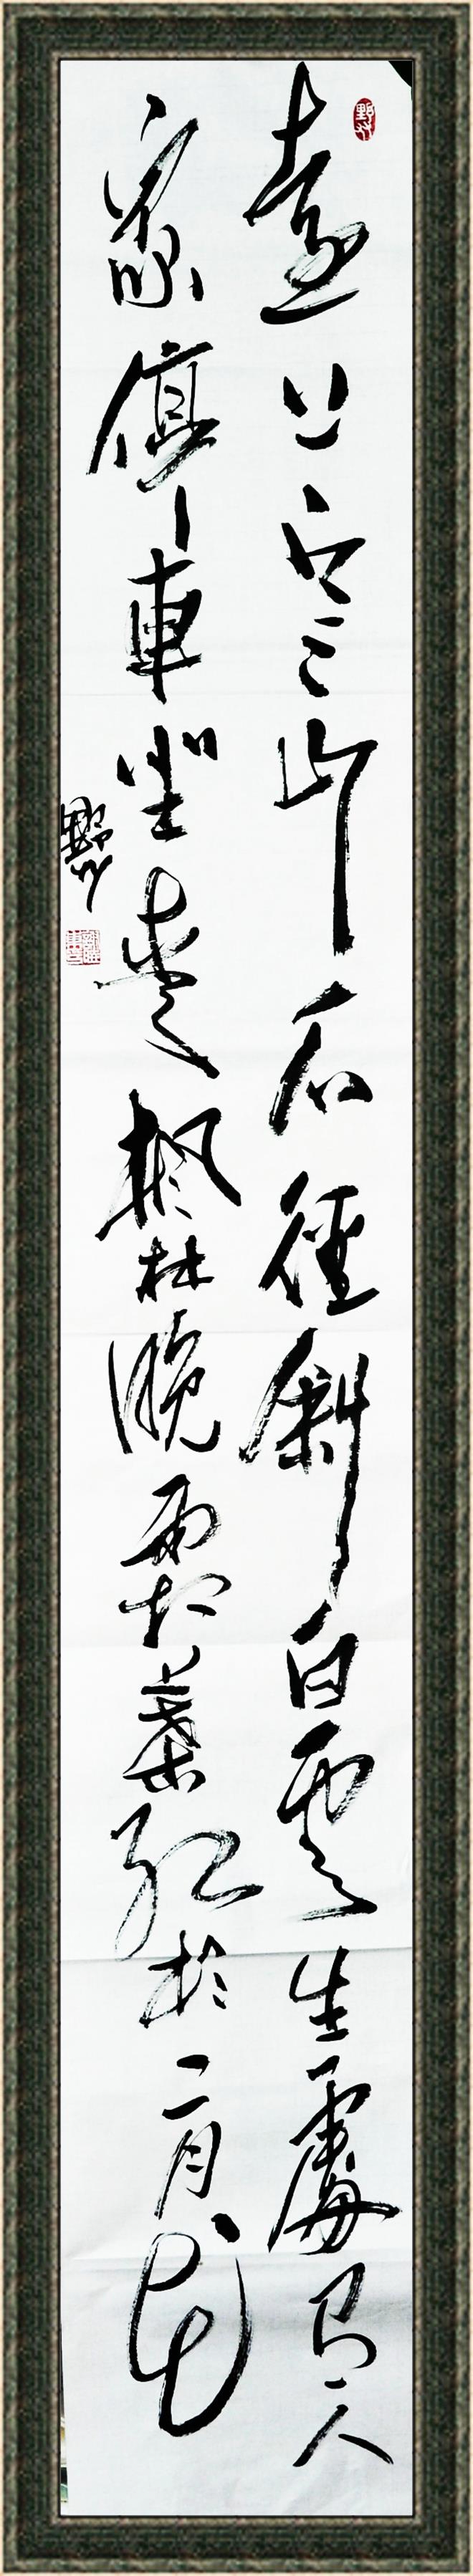 遠上寒山石徑斜白雲生處有人
家停車坐愛楓林晚霜葉紅於二月花